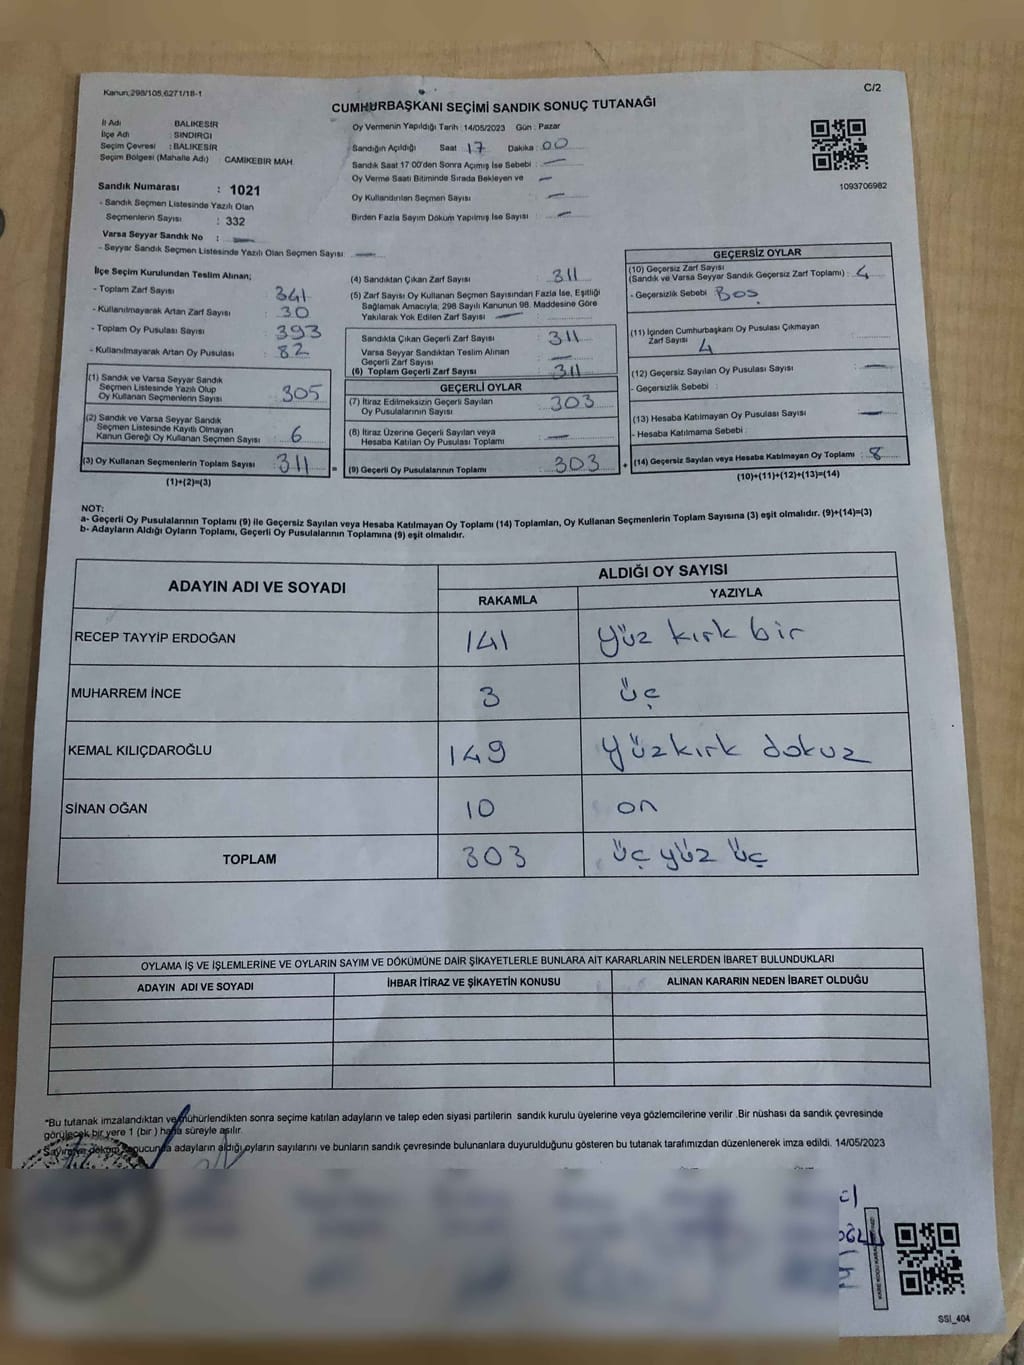 Kanun:298/105,6271/18-1
C/2
CUMHURBAŞKANI SEÇİMİ SANDIK SONUÇ TUTANAĞI
İl Adı : BALIKESİR
İlçe Adı : SINDIRGI
Seçim Çevresi : BALIKESİR
Seçim Bölgesi (Mahalle Adı) : CAMİKEBİR MAH.
Sandık Numarası : 1021
- Sandık Seçmen Listesinde Yazılı Olan
Seçmenlerin Sayısı : 332
Varsa Seyyar Sandık No : —
- Seyyar Sandık Seçmen Listesinde Yazılı Olan Seçmen Sayısı: —
Oy Vermenin Yapıldığı Tarih : 14/05/2023 Gün : Pazar
Sandığın Açıldığı Saat 17 Dakika : 00
Sandık Saat 17:00'den Sonra Açımış İse Sebebi : —
Oy Verme Saati Bitiminde Sırada Bekleyen ve —
Oy Kullandırılan Seçmen Sayısı : —
Birden Fazla Sayım Döküm Yapılmış İse Sayısı : —
1093706982
İlçe Seçim Kurulundan Teslim Alınan;
- Toplam Zarf Sayısı 341
- Kullanılmayarak Artan Zarf Sayısı : 30
- Toplam Oy Pusulası Sayısı : 393
- Kullanılmayarak Artan Oy Pusulası : 82
(1) Sandık ve Varsa Seyyar Sandık
Seçmen Listesinde Yazılı Olup
Oy Kullanan Seçmenlerin Sayısı : 305
(2) Sandık ve Varsa Seyyar Sandık
Seçmen Listesinde Kayıtlı Olmayan
Kanun Gereği Oy Kullanan Seçmen Sayısı : 6
(3) Oy Kullanan Seçmenlerin Toplam Sayısı : 311
(1)+(2)=(3)
=
(4) Sandıktan Çıkan Zarf Sayısı : 311
(5) Zarf Sayısı Oy Kullanan Seçmen Sayısından Fazla İse, Eşitliği
Sağlamak Amacıyla; 298 Sayılı Kanunun 98. Maddesine Göre
Yakılarak Yok Edilen Zarf Sayısı : —
Sandıkta Çıkan Geçerli Zarf Sayısı : 311
Varsa Seyyar Sandıktan Teslim Alınan
Geçerli Zarf Sayısı : —
(6) Toplam Geçerli Zarf Sayısı : 311
GEÇERLİ OYLAR
(7) İtiraz Edilmeksizin Geçerli Sayılan
Oy Pusulalarının Sayısı : 303
(8) İtiraz Üzerine Geçerli Sayılan veya
Hesaba Katılan Oy Pusulası Toplamı : —
(9) Geçerli Oy Pusulalarının Toplamı : 303
+
GEÇERSİZ OYLAR
(10) Geçersiz Zarf Sayısı
(Sandık ve Varsa Seyyar Sandık Geçersiz Zarf Toplamı) : 4
- Geçersizlik Sebebi : Boş
(11) İçinden Cumhurbaşkanı Oy Pusulası Çıkmayan
Zarf Sayısı 4
(12) Geçersiz Sayılan Oy Pusulası Sayısı : —
- Geçersizlik Sebebi :
(13) Hesaba Katılmayan Oy Pusulası Sayısı : —
- Hesaba Katılmama Sebebi :
(14) Geçersiz Sayılan veya Hesaba Katılmayan Oy Toplamı : 8
(10)+(11)+(12)+(13)=(14)
NOT:
a- Geçerli Oy Pusulalarının Toplamı (9) ile Geçersiz Sayılan veya Hesaba Katılmayan Oy Toplamı (14) Toplamları, Oy Kullanan Seçmenlerin Toplam Sayısına (3) eşit olmalıdır. (9)+(14)=(3)
b- Adayların Aldığı Oyların Toplamı, Geçerli Oy Pusulalarının Toplamına (9) eşit olmalıdır.
ADAYIN ADI VE SOYADI
ALDIĞI OY SAYISI
RAKAMLA YAZIYLA
RECEP TAYYİP ERDOĞAN 141 yüz kırk bir
MUHARREM İNCE 3 üç
KEMAL KILIÇDAROĞLU 149 yüzkırk dokuz
SİNAN OĞAN 10 on
TOPLAM 303 üç yüz üç
OYLAMA İŞ VE İŞLEMLERİNE VE OYLARIN SAYIM VE DÖKÜMÜNE DAİR ŞİKAYETLERLE BUNLARA AİT KARARLARIN NELERDEN İBARET BULUNDUKLARI
ADAYIN ADI VE SOYADI İHBAR İTİRAZ VE ŞİKAYETİN KONUSU ALINAN KARARIN NEDEN İBARET OLDUĞU
*Bu tutanak imzalandıktan ve mühürlendikten sonra seçime katılan adayların ve talep eden siyasi partilerin sandık kurulu üyelerine veya gözlemcilerine verilir .Bir nüshası da sandık çevresinde
görülecek bir yere 1 (bir ) hafta süreyle asılır.
Sayım ve döküm sonucunda adayların aldığı oyların sayılarını ve bunların sandık çevresinde bulunanlara duyurulduğunu gösteren bu tutanak tarafımızdan düzenlenerek imza edildi. 14/05/2023
SSI_404